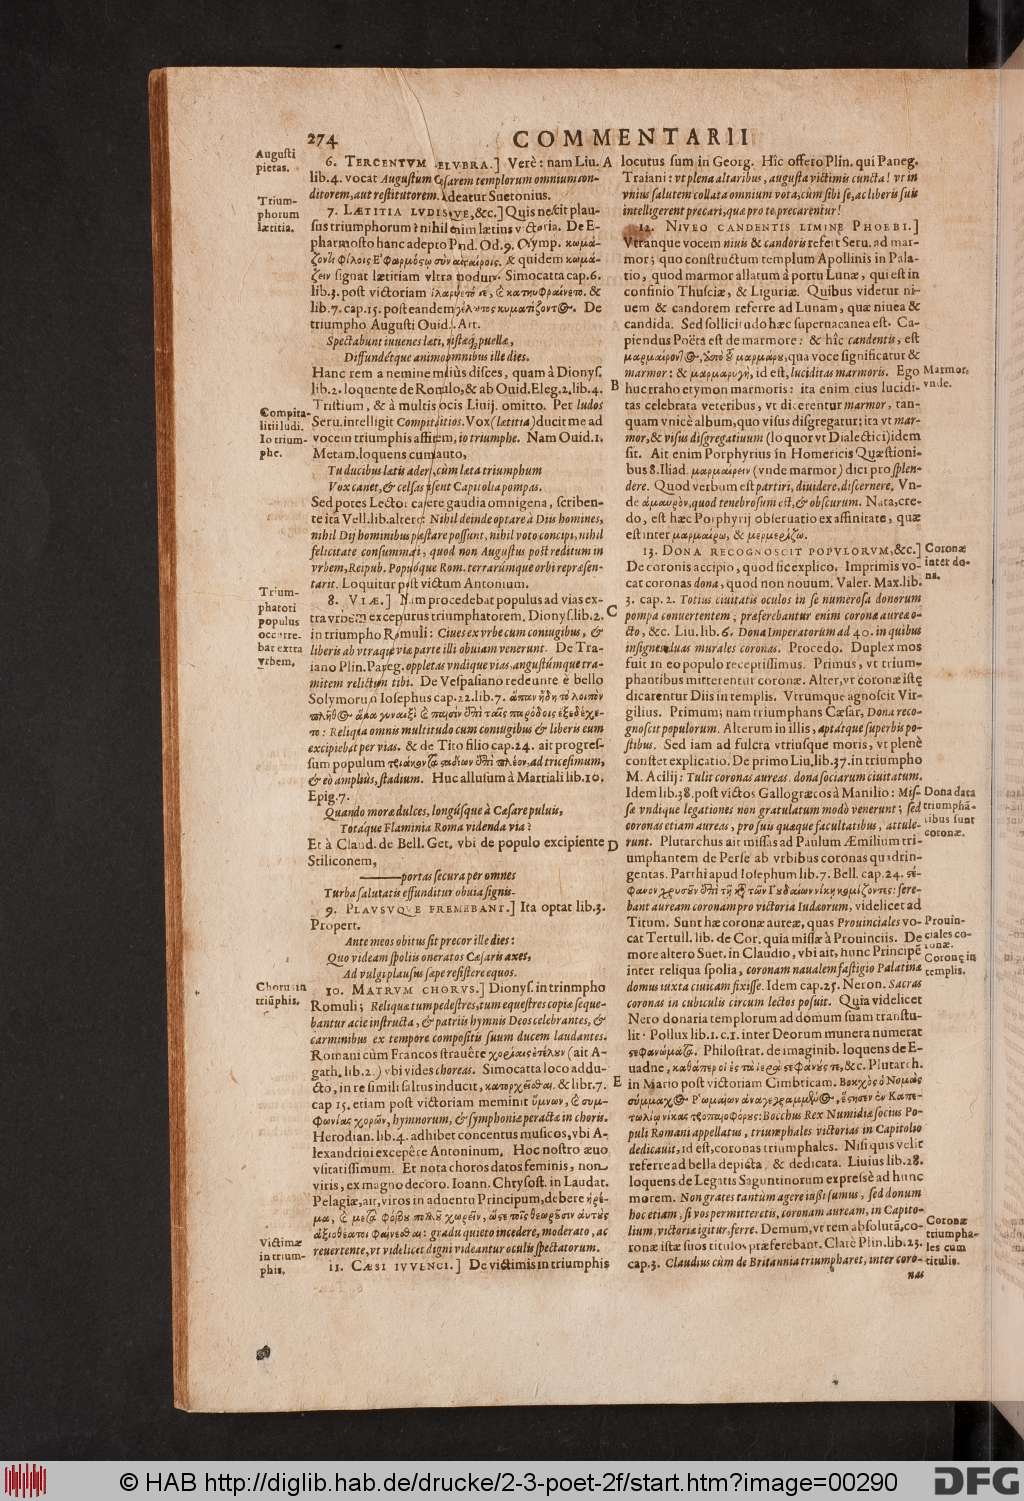 274
COMMENTARII
Augusti
pietas.
6. TERCENTVM DELVBRA.] Verè: nam Liu. A
lib. 4. vocat Augustum Cæsarem templorum omnium con-
ditorem, aut restitutorem. Adeatur Suetonius.
Trium-
phorum
lætitia.
7. LÆTITIA LVDISQVE, &c.] Quis nescit plau-
sus triumphorum? nihil enim lætius victoria. De E-
pharmosto hanc adepto Pind. Od. 9. Olymp. κωμά-
ζοντι φίλοις Ἐφαρμόςῳ σὺν ἑταίροις. & quidem κωμά-
ζειν signat lætitiam vltra modum. Simocatta cap. 6.
lib. 3. post victoriam &
lib. 7. cap. 15. poste andem γέλωτος κυματίζοντος. De
triumpho Augusti Ouid. 1. Art.
Spectabunt iuuenes læti, mistæq, puellæ,
Diffundétque animos omnibus ille dies.
Hanc rem a nemine meliùs disces, quam à Dionys.
lib. 2. loquente de Romulo, & ab Ouid. Eleg. 2. lib. 4.
Tristium, & à multis locis Liuij. omitto. Per ludos
Compita-
litii ludi.
Io trium-
phe.
Seru. intelligit Compitalitios. Vox (lætitia) ducit me ad
vocem triumphis affinem, io triumphe. Nam Ouid. 1.
Metam. loquens cum lauto,
Tu ducibus lætis aderis, cùm læta triumphum
Vox canet, & celsas visent Capitolia pompas.
Sed potes Lector capere gaudia omnigena, scriben-
te ita Vell. lib. altero: Nihil deinde optare à Diis homines,
nihil Dij hominibus præstare possunt, nihil voto concipi, nihil
felicitate consummari, quod non Augustus post reditum in
vrbem, Reipub. Populóque Rom. terrarúmque orbi repræsen-
tarit. Loquitur post victum Antonium.
Trium-
phatori
populus
occurre-
bat extra
vrbem.
8. VIÆ.] Nam procedebat populus ad vias ex-
tra vrbem excepturus triumphatorem. Dionys. lib. 2. C
in triumpho Romuli: Ciues ex vrbe cum coniugibus, &
liberis ab vtraque viæ parte illi obuiam venerunt. De Tra-
iano Plin. Paneg. oppletas vndique vias, angustúmque tra-
mitem relictum tibi. De Vespasiano redeunte è bello
Solymorum Iosephus cap. 22. lib. 7. ἅπαν ἤδη τὸ λοιπὸν
πλῆθος ἅμα γυναιξὶ καὶ παισὶν ἐπὶ ταῖς παρόδοις ἐξεδέχε-
το: Reliqua omnis multitudo cum coniugibus & liberis eum
excipiebat per vias. & de Tito filio cap. 24. ait progres-
sum populum τριάκοντα σαδίων ἐπὶ πλέον, ad tricesimum,
& eò ampliùs, stadium. Huc allusum à Martiali lib. 10.
Epig. 7.
Quando moræ dulces, longúsque à Cæsare puluis,
Totáque Flaminia Roma videnda via?
Et à Claud. de Bell. Get. vbi de populo excipiente D
Stiliconem,
——portas secura per omnes
Turba salutatis effunditur obuia signis.
9. PLAVSVQVE FREMEBANT.] Ita optat lib. 3.
Propert.
Ante meos obitus sit precor ille dies:
Quo videam spoliis oneratos Cæsaris axes,
Ad vulgi plausus sæpe resistere equos.
Chorus in
triũphis.
10. MATRVM CHORVS.] Dionys. in trinmpho
Romuli; Reliquæ tum pedestres, tum equestres copiæ seque-
bantur acie instructa, & patriis hymnis Deos celebrantes, &
carminibus ex tempore compositis suum ducem laudantes.
Romani cùm Francos strauêre χορείας ἐτέλουν (ait A-
gath. lib. 2.) vbi vides choreas. Simocatta loco addu-
cto, in re simili saltus inducit, κατορχεῖσθαι. & lib. 7. E
cap 15. etiam post victoriam meminit ὕμνων, καὶ συμ-
φωνίας χορῶν, hymnorum, & symphoniæ peractæ in choris.
Herodian. lib. 4. adhibet concentus musicos, vbi A-
lexandrini excepêre Antoninum. Hoc nostro æuo
vsitatissimum. Et nota choros datos feminis, non
viris, ex magno decoro. Ioann. Chrysost. in Laudat.
Pelagiæ, ait, viros in aduentu Principum, debere ἠρέ-
μα, καὶ μετὰ φόβου πολλοῦ χωρεῖν, ὥςε τοῖς θεωροῦσιν αὐτοὺς
ἀξιοθέατοι φαίνεσθαι: gradu quieto incedere, moderato, ac
reuerente, vt videlicet digni videantur oculis spectatorum.
Victimæ
in trium-
phis.
11. CÆSI IVVENCI.] De victimis in triumphis
locutus sum in Georg. Hîc offero Plin. qui Paneg.
Traiani: vt plena altaribus, augusta victimis cuncta! vt in
vnius salutem collata omnium vota, cùm sibi se, ac liberis suis
intelligerent precari, quæ pro te precarentur!
12. NIVEO CANDENTIS LIMINE PHOEBI.]
Vtranque vocem niuis & candoris refert Seru. ad mar-
mor; quo constructum templum Apollinis in Pala-
tio, quod marmor allatum à portu Lunæ, qui est in
confinio Thusciæ, & Liguriæ. Quibus videtur ni-
uem & candorem referre ad Lunam, quæ niuea &
candida. Sed sollicitudo hæc superuacanea est. Ca-
piendus Poëta est de marmore: & hîc candentis, est
μαρμαίροντος, ἀπὸ τοῦ μαρμάρου, qua voce significatur &
Marmor,
vnde.
marmor: & μαρμαρυγὴ, id est, luciditas marmoris. Ego
B huc traho etymon marmoris: ita enim eius lucidi-
tas celebrata veteribus, vt dicerentur marmor, tan-
quam vnicè album, quo visus disgregatur: ita vt mar-
mor, & visus disgregatiuum (loquor vt Dialectici) idem
sit. Ait enim Porphyrius in Homericis Quæstioni-
bus 8. Iliad. μαρμαίρειν (vnde marmor) dici pro splen-
dere. Quod verbum est partiri, diuidere, discernere. Vn-
de ἀμαυρὸν, quod tenebrosum est, & obscurum. Nata, cre-
do, est hæc Porphyrij obseruatio ex affinitate, quæ
est inter μαρμαίρω, & μερμερίζω.
Coronæ
inter do-
na.
13. DONA RECOGNOSCIT POPVLORVM, &c.]
De coronis accipio, quod sic explico. Imprimis vo-
cat coronas dona, quod non nouum. Valer. Max. lib.
3. cap. 2. Totius ciuitatis oculos in se numerosa donorum
pompa conuertentem; præferebantur enim coronæ aureæ o-
cto, &c. Liu. lib. 6. Dona Imperatorum ad 40. in quibus
insignes duas murales coronas. Procedo. Duplex mos
fuit in eo populo receptissimus. Primus, vt trium-
phantibus mitterentur coronæ. Alter, vt coronæ istę
dicarentur Diis in templis. Vtrumque agnoscit Vir-
gilius. Primum; nam triumphans Cæsar, Dona reco-
gnoscit populorum. Alterum in illis, aptátque superbis po-
stibus. Sed iam ad fulcra vtriusque moris, vt plenè
constet explicatio. De primo Liu. lib. 37. in triumpho
M. Acilij: Tulit coronas aureas dona sociarum ciuitatum.
Dona data
triumphã-
tibus sunt
coronæ.
Idem lib. 38. post victos Gallogræcos à Manilio: Mis-
sæ vndique legationes non gratulatum modò venerunt; sed
coronas etiam aureas, pro suis quæque facultatibus, attule-
runt. Plutarchus ait missas ad Paulum Æmilium tri-
umphantem de Perse ab vrbibus coronas quadrin-
gentas. Parthi apud Iosephum lib. 7. Bell. cap. 24. ςέ-
φανον χρυσοῦν ἐπὶ τῇ κατὰ τῶν Ἰουδαίων νίκῃ κομίζοντες: fere-
bant auream coronam pro victoria Iudæorum, videlicet ad
Prouin-
ciales co-
ronæ.
Coronę in
templis.
Titum. Sunt hæ coronæ aureæ, quas Prouinciales vo-
cat Tertull. lib. de Cor. quia missæ à Prouinciis. De
more altero Suet. in Claudio, vbi ait, hunc Principẽ
inter reliqua spolia, coronam naualem fastigio Palatinæ
domus iuxta ciuicam fixisse. Idem cap. 25. Neron. Sacras
coronas in cubiculis circum lectos posuit. Quia videlicet
Nero donaria templorum ad domum suam transtu-
lit: Pollux lib. 1. c. 1. inter Deorum munera numerat
ςεφανώματα. Philostrat. de imaginib. loquens de E-
uadne, καθάπερ οἱ ἐς τὰ ἱερὰ ςεφάνους τε, &c. Plutarch.
in Mario post victoriam Cimbricam. Βοκχὸς ὁ Νομὰς
σύμμαχος Ῥωμαίων ἀναγεγραμμένος, ἔςησεν ἐν Καπε-
τωλίῳ νίκας τροπαιοφόρους: Bocchus Rex Numidiæ socius Po-
puli Romani appellatus, triumphales victorias in Capitolio
dedicauit, id est, coronas triumphales. Nisi quis velit
referre ad bella depicta, & dedicata. Liuius lib. 28.
loquens de Legatis Saguntinorum expresse ad hunc
morem. Non grates tantùm agere iussi sumus, sed donum
hoc etiam, si vos permitteretis, coronam auream, in Capito-
Coronæ
triumpha-
les cum
titulis.
lium, victoriæ igitur, ferre. Demum, vt rem absolutã, co-
ronæ istæ suos titulos præferebant. Clarè Plin. lib. 23.
cap. 3. Claudius cùm de Britannia triumpharet, inter coro-
nas
© HAB http://diglib.hab.de/drucke/2-3-poet-2f/start.htm?image=00290
DFG